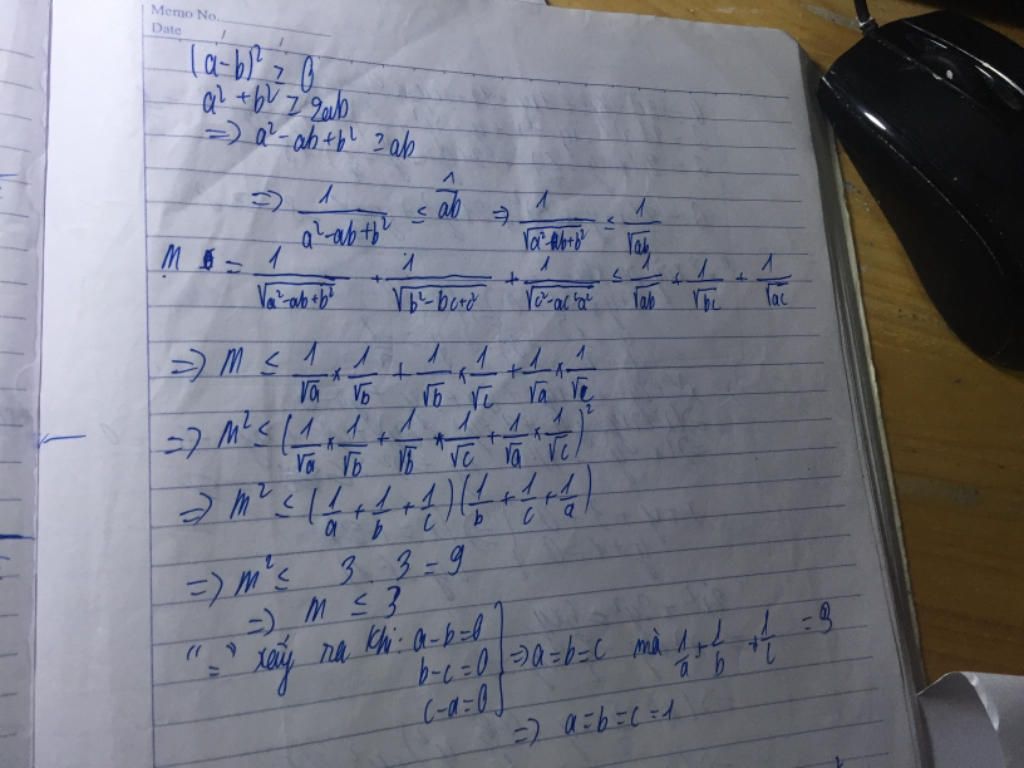 Memo No.
Date / /
(a-b)² ≥ 0
a² + b² ≥ 2ab
=> a² - ab + b² ≥ ab
=> 1/(a² - ab + b²) ≤ 1/ab => 1/√(a² - ab + b²) ≤ 1/√ab
M = 1/√(a² - ab + b²) + 1/√(b² - bc + c²) + 1/√(c² - ac + a²) ≤ 1/√ab + 1/√bc + 1/√ac
=> M ≤ 1/√a × 1/√b + 1/√b × 1/√c + 1/√a × 1/√c
=> M² ≤ (1/√a × 1/√b + 1/√b × 1/√c + 1/√a × 1/√c)²
=> M² ≤ (1/a + 1/b + 1/c)(1/b + 1/c + 1/a)
=> M² ≤ 3 . 3 = 9
=> M ≤ 3
"=" xảy ra khi: a-b=0
b-c=0
c-a=0
=> a=b=c mà 1/a + 1/b + 1/c = 3
=> a=b=c=1